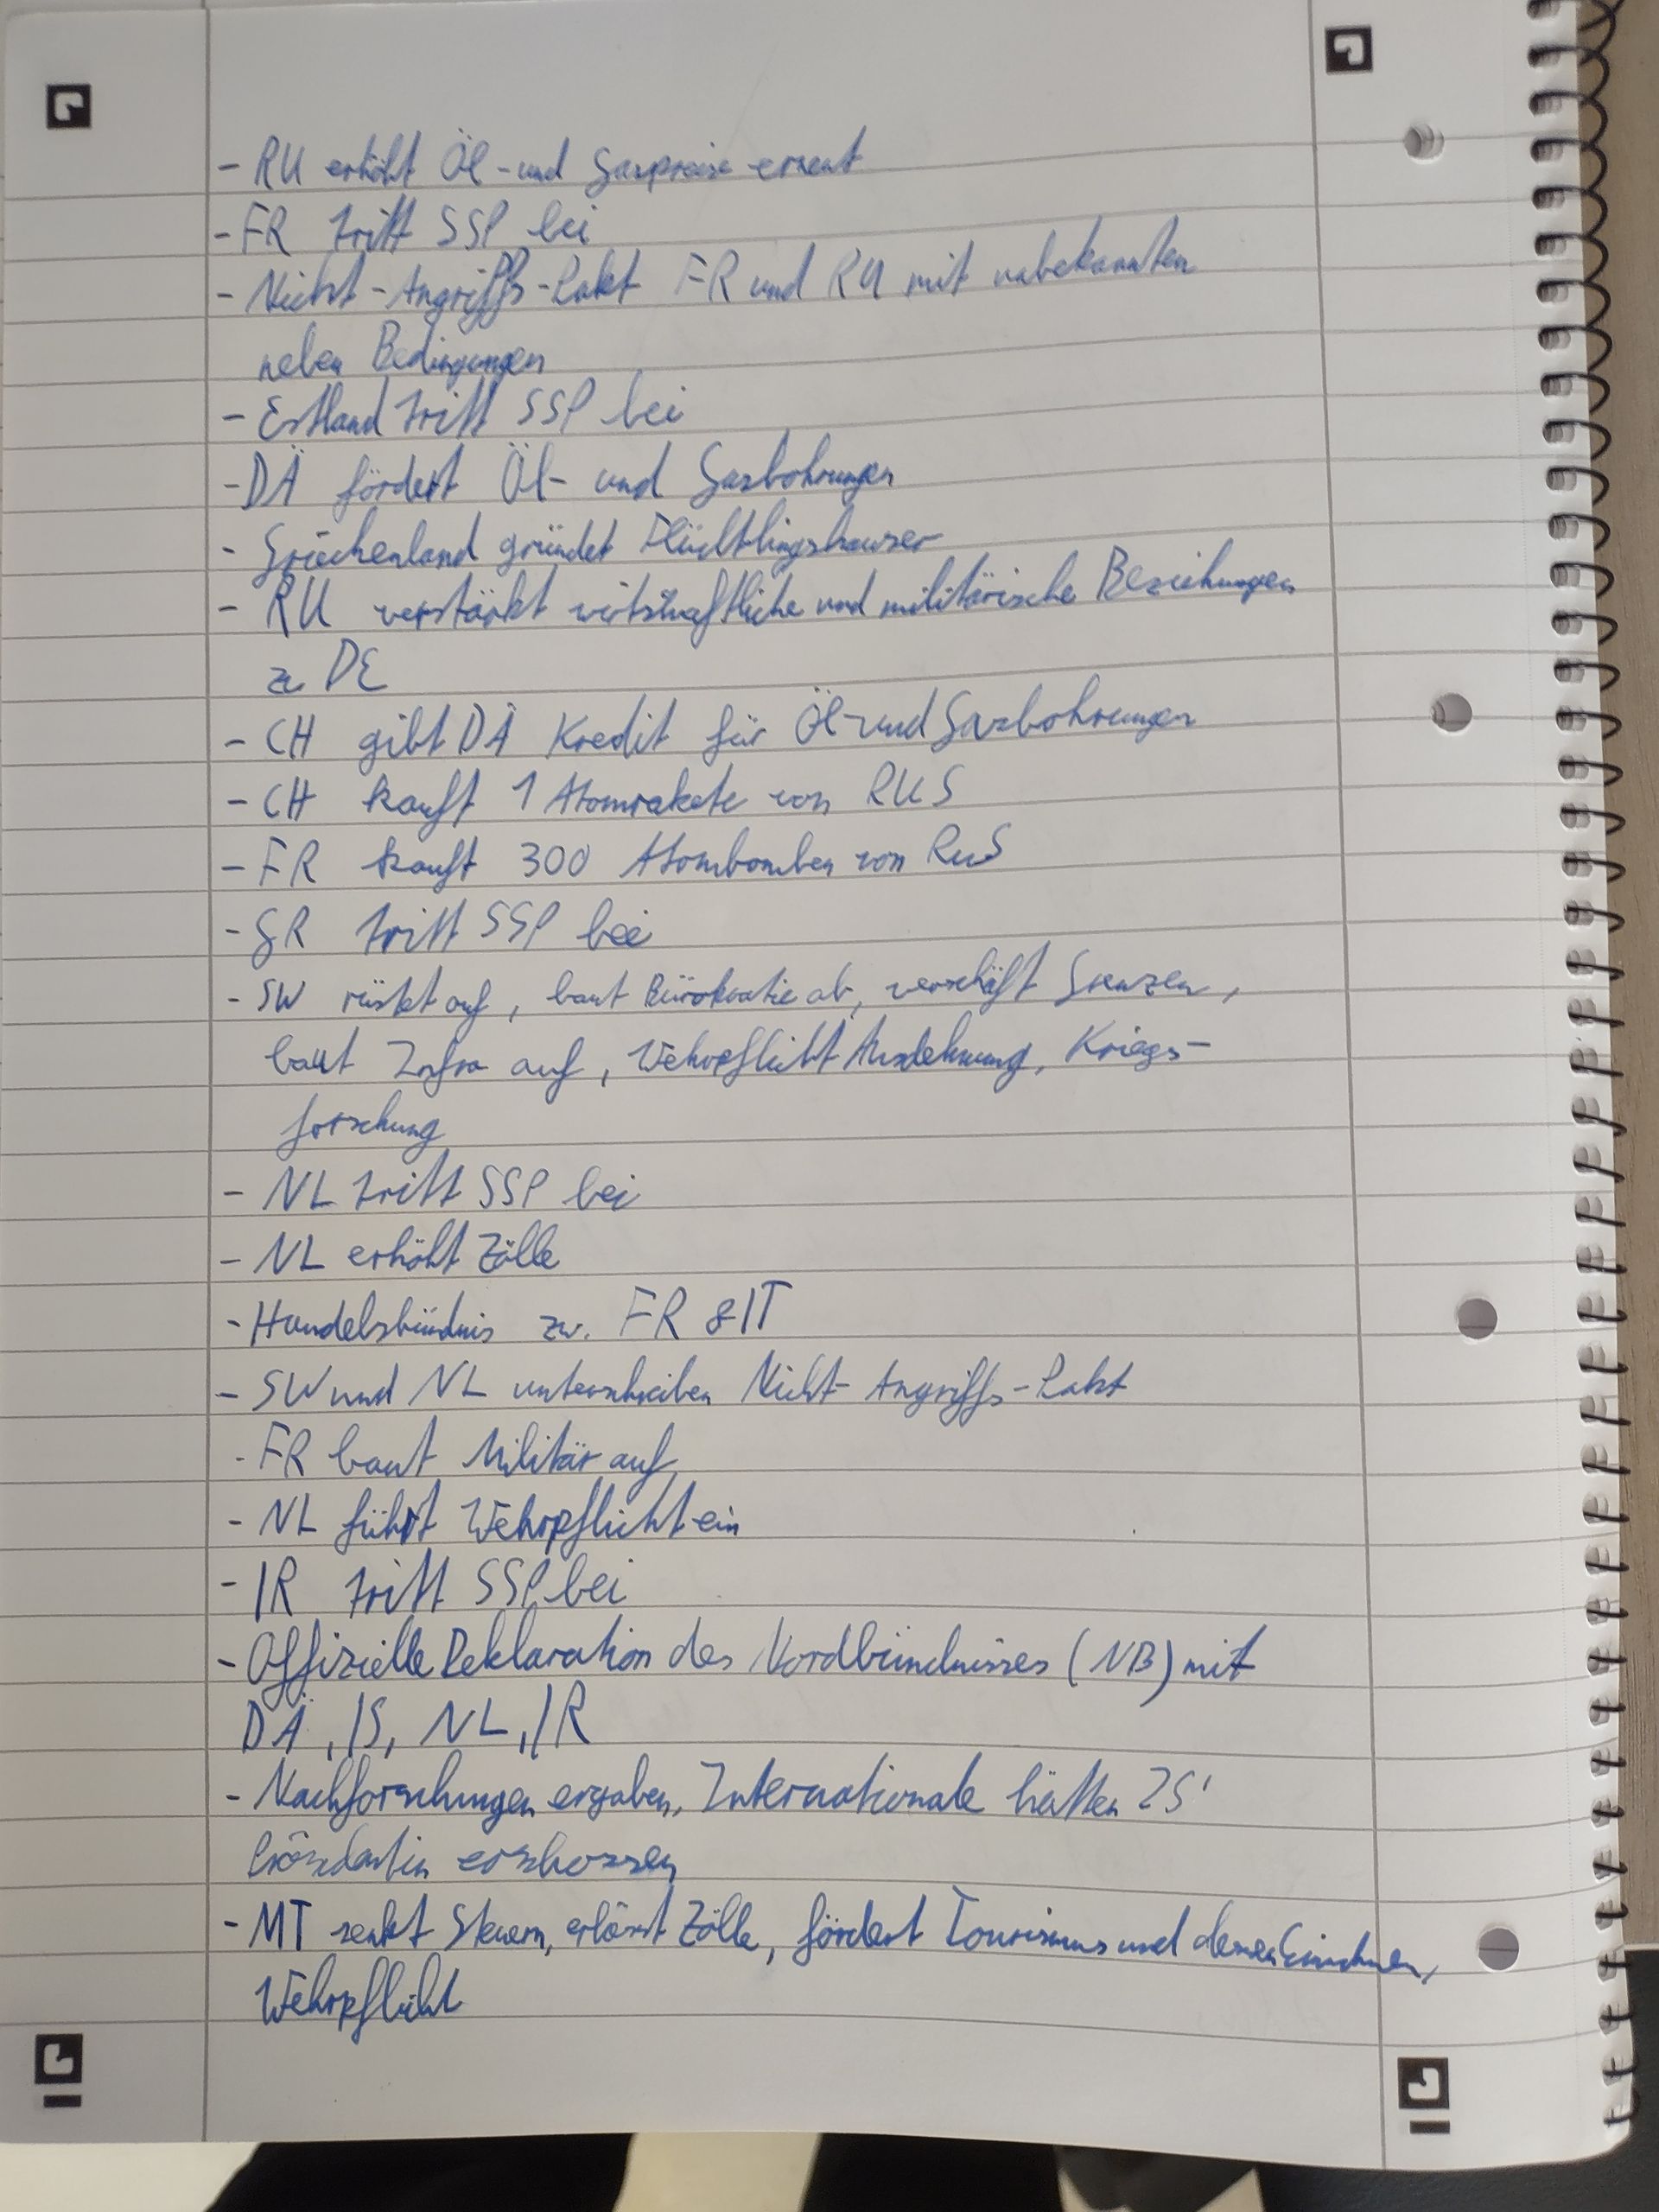 - RU erhöht Öl- und Gaspreise erneut
- FR tritt SSP bei
- Nicht-Angriffs-Pakt FR und RU mit unbekannten
neben Bedingungen
- Estland tritt SSP bei
- DÄ fördert Öl- und Gasbohrungen
- Griechenland gründet Flüchtlingshäuser
- RU verstärkt wirtschaftliche und militärische Beziehungen
zu DE
- CH gibt DÄ Kredit für Öl- und Gasbohrungen
- CH kauft 1 Atomrakete von RUS
- FR kauft 300 Atombomben von RuS
- GR tritt SSP bei
- SW rüstet auf, baut Bürokratie ab, verschäft Grenzen,
baut Infra auf, Wehrpflicht Ausdehnung, Kriegs-
forschung
- NL tritt SSP bei
- NL erhöht Zölle
- Handelsbündnis zw. FR & IT
- SW und NL unterschreiben Nicht-Angriffs-Pakt
- FR baut Militär auf
- NL führt Wehrpflicht ein
- IR tritt SSP bei
- Offizielle Deklaration des Nordbündnisses (NB) mit
DÄ, IS, NL, IR
- Nachforschungen ergaben, Internationale hätten IS'
Präsdentin erschossen
- MT senkt Steuern, erlässt Zölle, fördert Tourismus und deren
Wehrpflicht